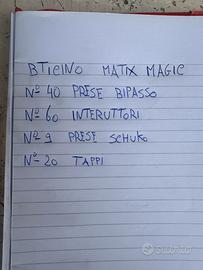 BTICINO MATIX MAGIC
N° 40 PRESE BIPASSO
N° 60 INTERUTTORI
N° 9 PRESE SCHUKO
N° 20 TAPPI
Subito